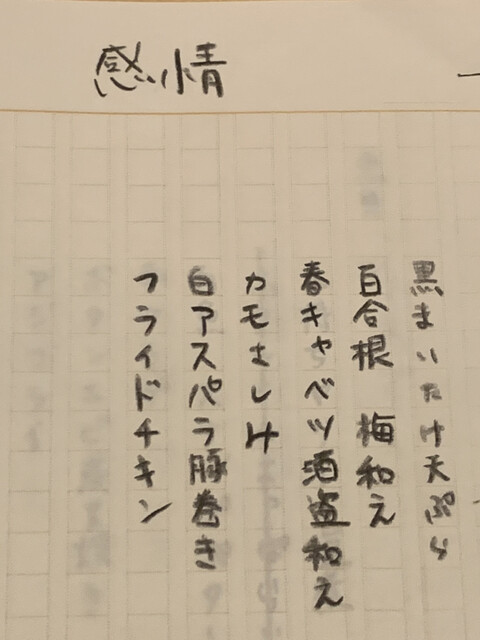 感情
黒まいたけ天ぷら
百合根 梅和え
春キャベツ酒盗和え
カモさしみ
白アスパラ豚巻き
フライドチキン